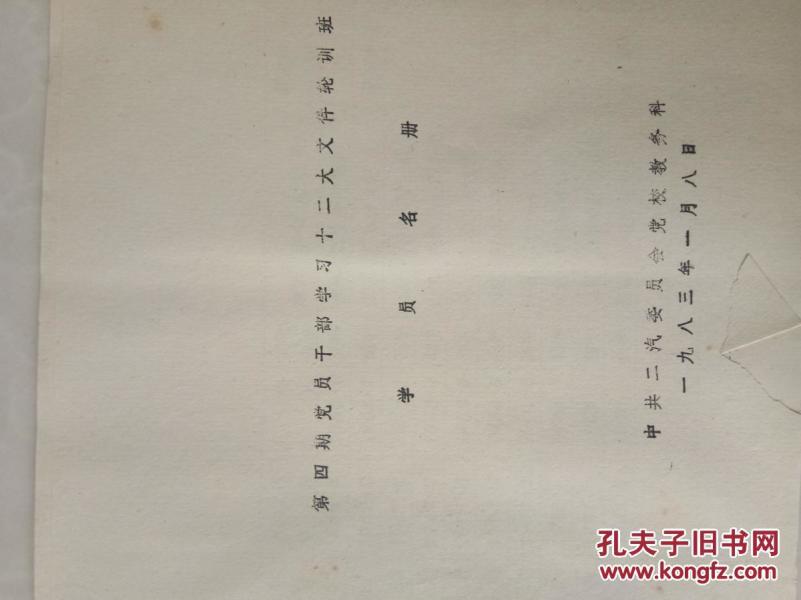 第四期党员干部学习十二大文件轮训班
学员名册
中共二汽委员会党校教务科
一九八三年一月八日
孔夫子旧书网
www.kongfz.com